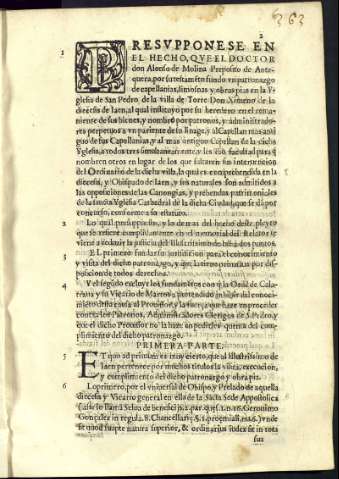 363
2
1
PRESVPPONESE EN
EL HECHO, QVE EL DOCTOR
don Alonso de Molina Preposito de Ante-
quera, por su testamento fundò vn patronazgo
de capellanias, limosnas y obras pias en la Y-
glesia de San Pedro, de la villa de Torre Don Ximeno de la
diocesis de Iaen, al qual instituyò por su heredero en el rema-
niente de sus bienes, y nombrò por patronos, y administrado-
res perpetuos a vn pariente de su linage, y al Capellan mas anti-
guo de sus Capellanias, y al mas antiguo Capellan de la dicha
Yglesia, a todos tres simul
nombren otros en lugar de los que faltaren sin interuencion
del Ordinario de la dicha villa, la qual es comprehendida en la
diocesis, y Obispado de Iaen, y sus naturales son admitidos a
las opposiciones de las Canongias, y prebendas patrimoniales
de la sancta Yglesia Cathedral de la dicha Ciudad, que se dã por
concurso, conforme a su estatuto.
2 Lo qual presuppuesto, y lo demas del hecho deste pleyto
que se refiere cumplidamente en el memorial del Relator se
viene a reduzir la justicia del Illustrissimo de Iaen a dos puntos.
3 El primero fundar su jurisdicion para el conocimiento
y visita del dicho patronazgo, y que la tiene priuatiua por dis-
posicion de todos derechos.
4 Y el segundo excluyr los fundamentos con q̃ la Ordẽ de Cala-
traua y su Vicario de Martos, pretenden
con los Patronos, Administradores Clerigos de S. Pedro, y
del cumpli-
miento del dicho patronazgo.
PRIMERA PARTE.
5 ET quo ad primam es muy cierto, que al Illustrissimo de
Iaen pertenece por muchos titulos la visita, execucion,
y cumplimiento del dicho patronazgo y obra pia.
6 Lo primero, por el vniuersal de Obispo, y Prelado de aquella
diocesis y Vicario general en ella de la Sacra Sede Appostolica
Geronimo
Gonçalez in regula 8. Chancellariæ
se quod suapte natura superior, & ordinarius iudex se in tota
sua